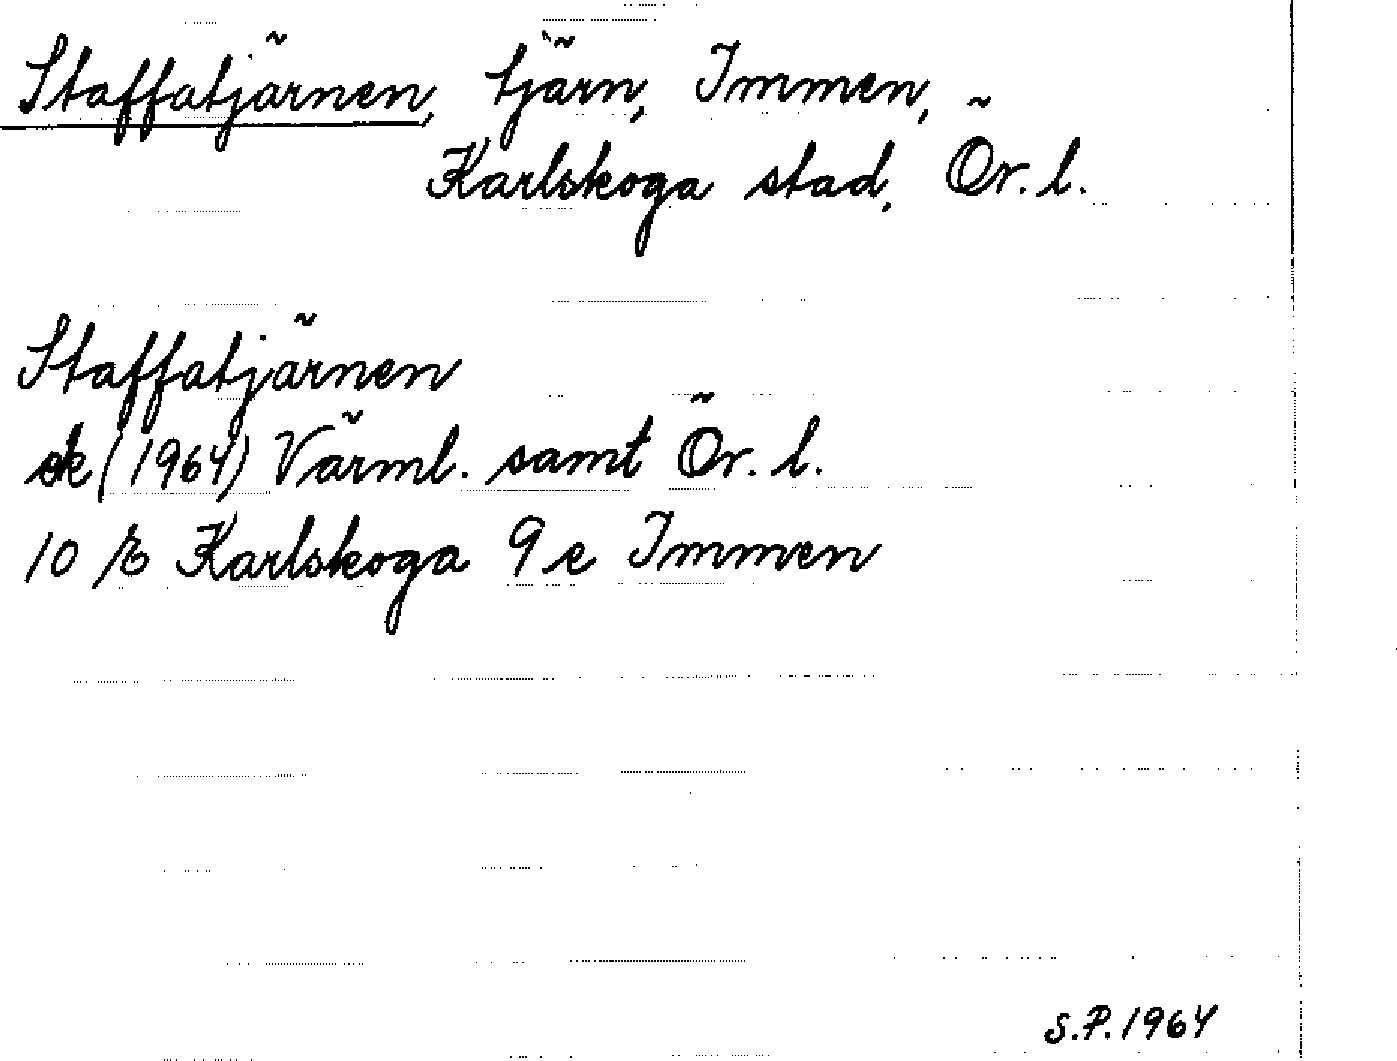 Staffatjärnen, tjärn, Immen,
Karlskoga stad, Ör. l.
Staffatjärnen
ek (1964) Värml. samt Ör. l.
10 Karlskoga 9 e Immen
S.P. 1964